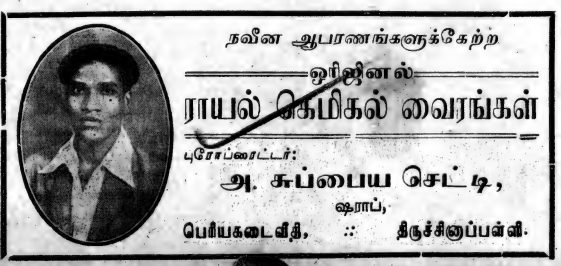 நவீன ஆபரணங்களுக்கேற்ற
ஒரிஜினல்
ராயல் கெமிகல் வைரங்கள்
புரோப்ரைட்டர்:
அ. சுப்பைய செட்டி,
ஷராப்,
பெரியகடைவீதி, :: திருச்சினாப்பள்ளி.